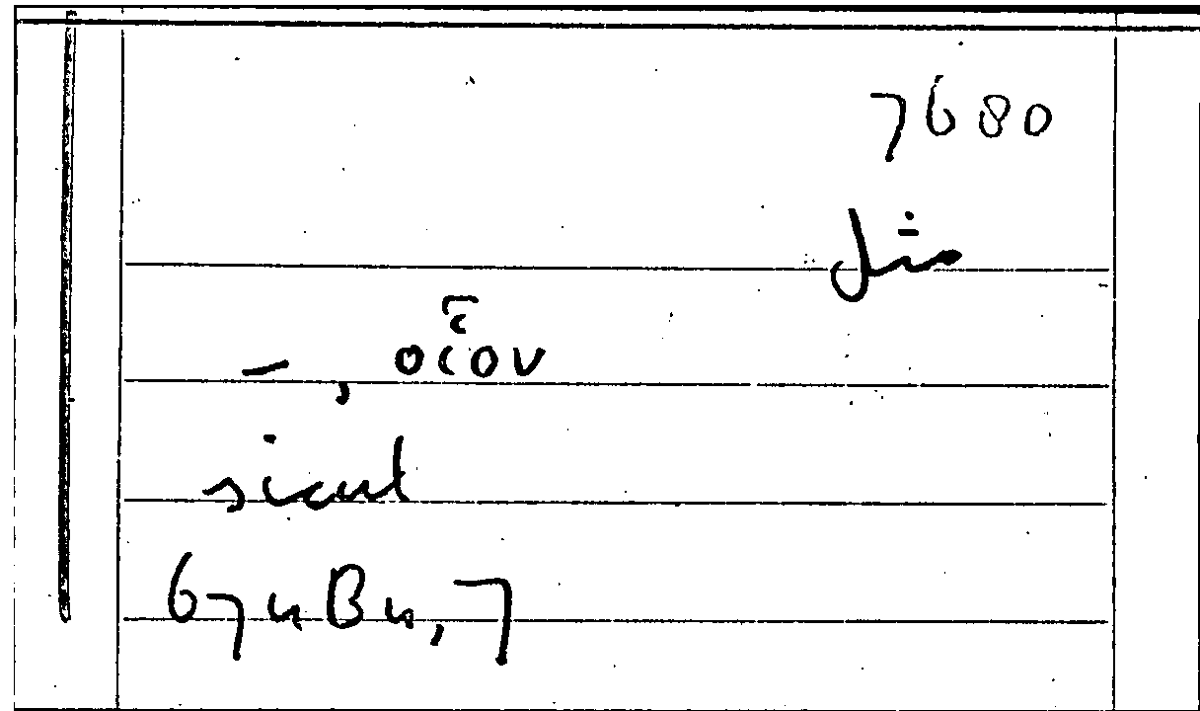 7680
مثل
–, οcον
sicut
67uBu, 7